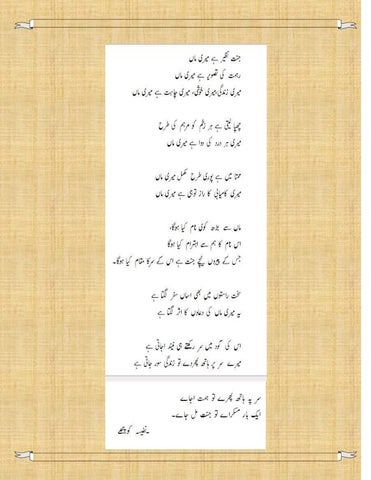 جنت نظیر ہے میری ماں
رحمت کی تصویر ہے میری ماں
میری زندگی،میری خوشی، میری چاہت ہے میری ماں
چھپا لیتی ہے ہر زخم کو مرہم کی طرح
میری ہر درد کی دوا ہے میری ماں
ممتا میں ہے پوری طرح مکمل میری ماں
میری کامیابی کا راز توہی ہے میری ماں
ماں سے بڑھ کوئی نام کیا ہوگا،
اس نام کا ہم سے احترام کیا ہوگا
جس کے پیروں نیچے جنت ہے اس کے سرکا مقام کیا ہوگا۔
سخت راستوں میں بھی اساں سفر لگتا ہے
یہ میری ماں کی دعاوں کا اثر لگتا ہے
اس کی گود میں سر رکھتے ہی نیند اجاتی ہے
میرے سر پر ہاتھ پھیردے تو زندگی سور جاتی ہے
سر پہ ہاتھ پھیرے تو ہمت اجاے
ایک بار مسکراے تو جنت مل جاے۔
۔نفیسہ